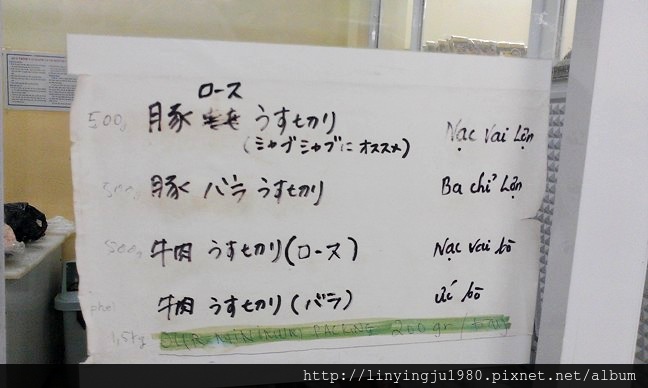 ロース
500g 豚 うす切り Nạc Vai Lợn
(シャブシャブにオススメ)
500g 豚 バラ うす切り Ba chỉ Lợn
500g 牛肉 うす切り(ロース) Nạc vai bò
牛肉 うす切り(バラ) ức bò
1,5kg OUR MINIMUM PACKING 200gr/
http://linyingju1980.pixnet.net/album